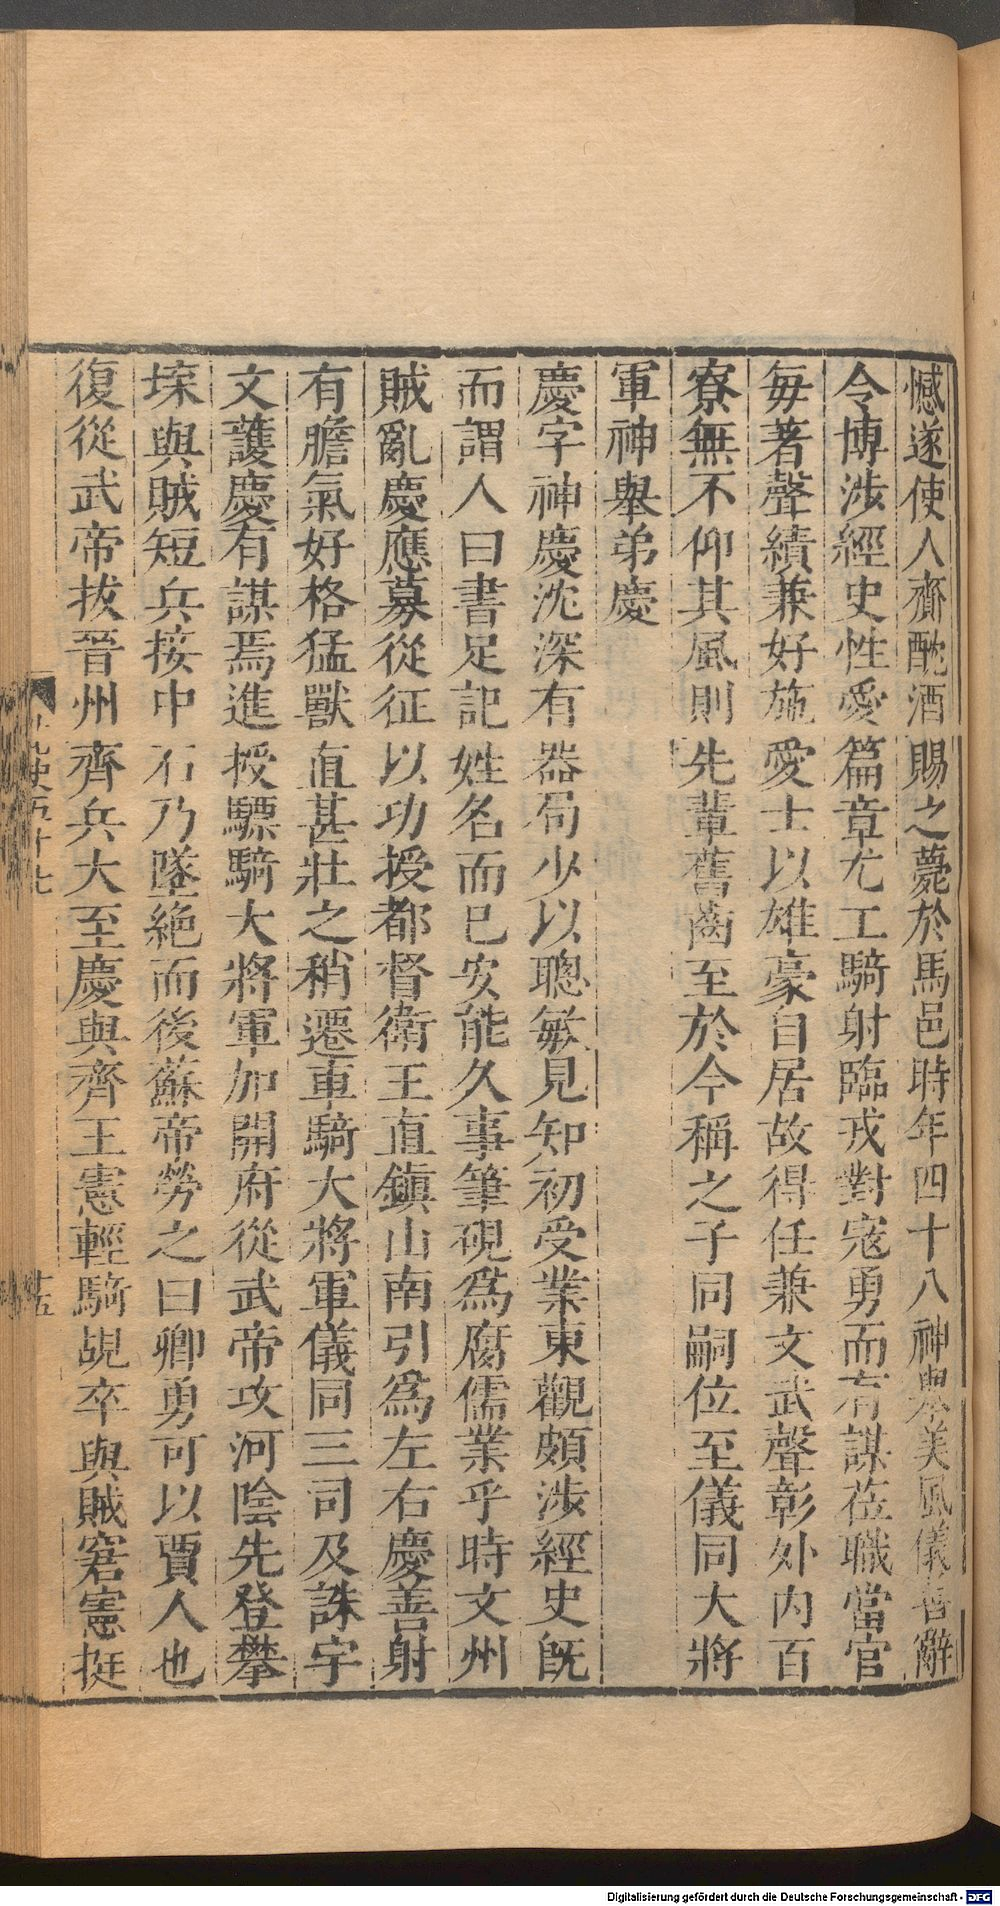 憾遂使人齎酖酒賜之薨於馬邑時年四十八神舉美風儀善辭
令博涉經史性愛篇章尤工騎射臨戎對寇勇而有謀莅職當官
每著聲績兼好施愛士以雄豪自居故得任兼文武聲彰外內百
寮無不仰其風則先輩舊齒至於今稱之子同嗣位至儀同大將
軍神舉弟慶
慶字神慶沈深有器局少以聰敏見知初受業東觀頗涉經史既
而謂人曰書足記姓名而已安能久事筆硯爲腐儒業乎時文州
賊亂慶應募從征以功授都督衛王直鎭山南引爲左右慶善射
有膽氣好格猛獸直甚壯之稍遷車騎大將軍儀同三司及誅宇
文護慶有謀焉進授驃騎大將軍加開府從武帝攻河陰先登攀
堞與賊短兵接中石乃墜絕而後蘇帝勞之曰卿勇可以賈人也
復從武帝拔晉州齊兵大至慶與齊王憲輕騎覘卒與賊窘憲挺
北史五十七
十五
Digitalisierung gefördert durch die Deutsche Forschungsgemeinschaft - DFG